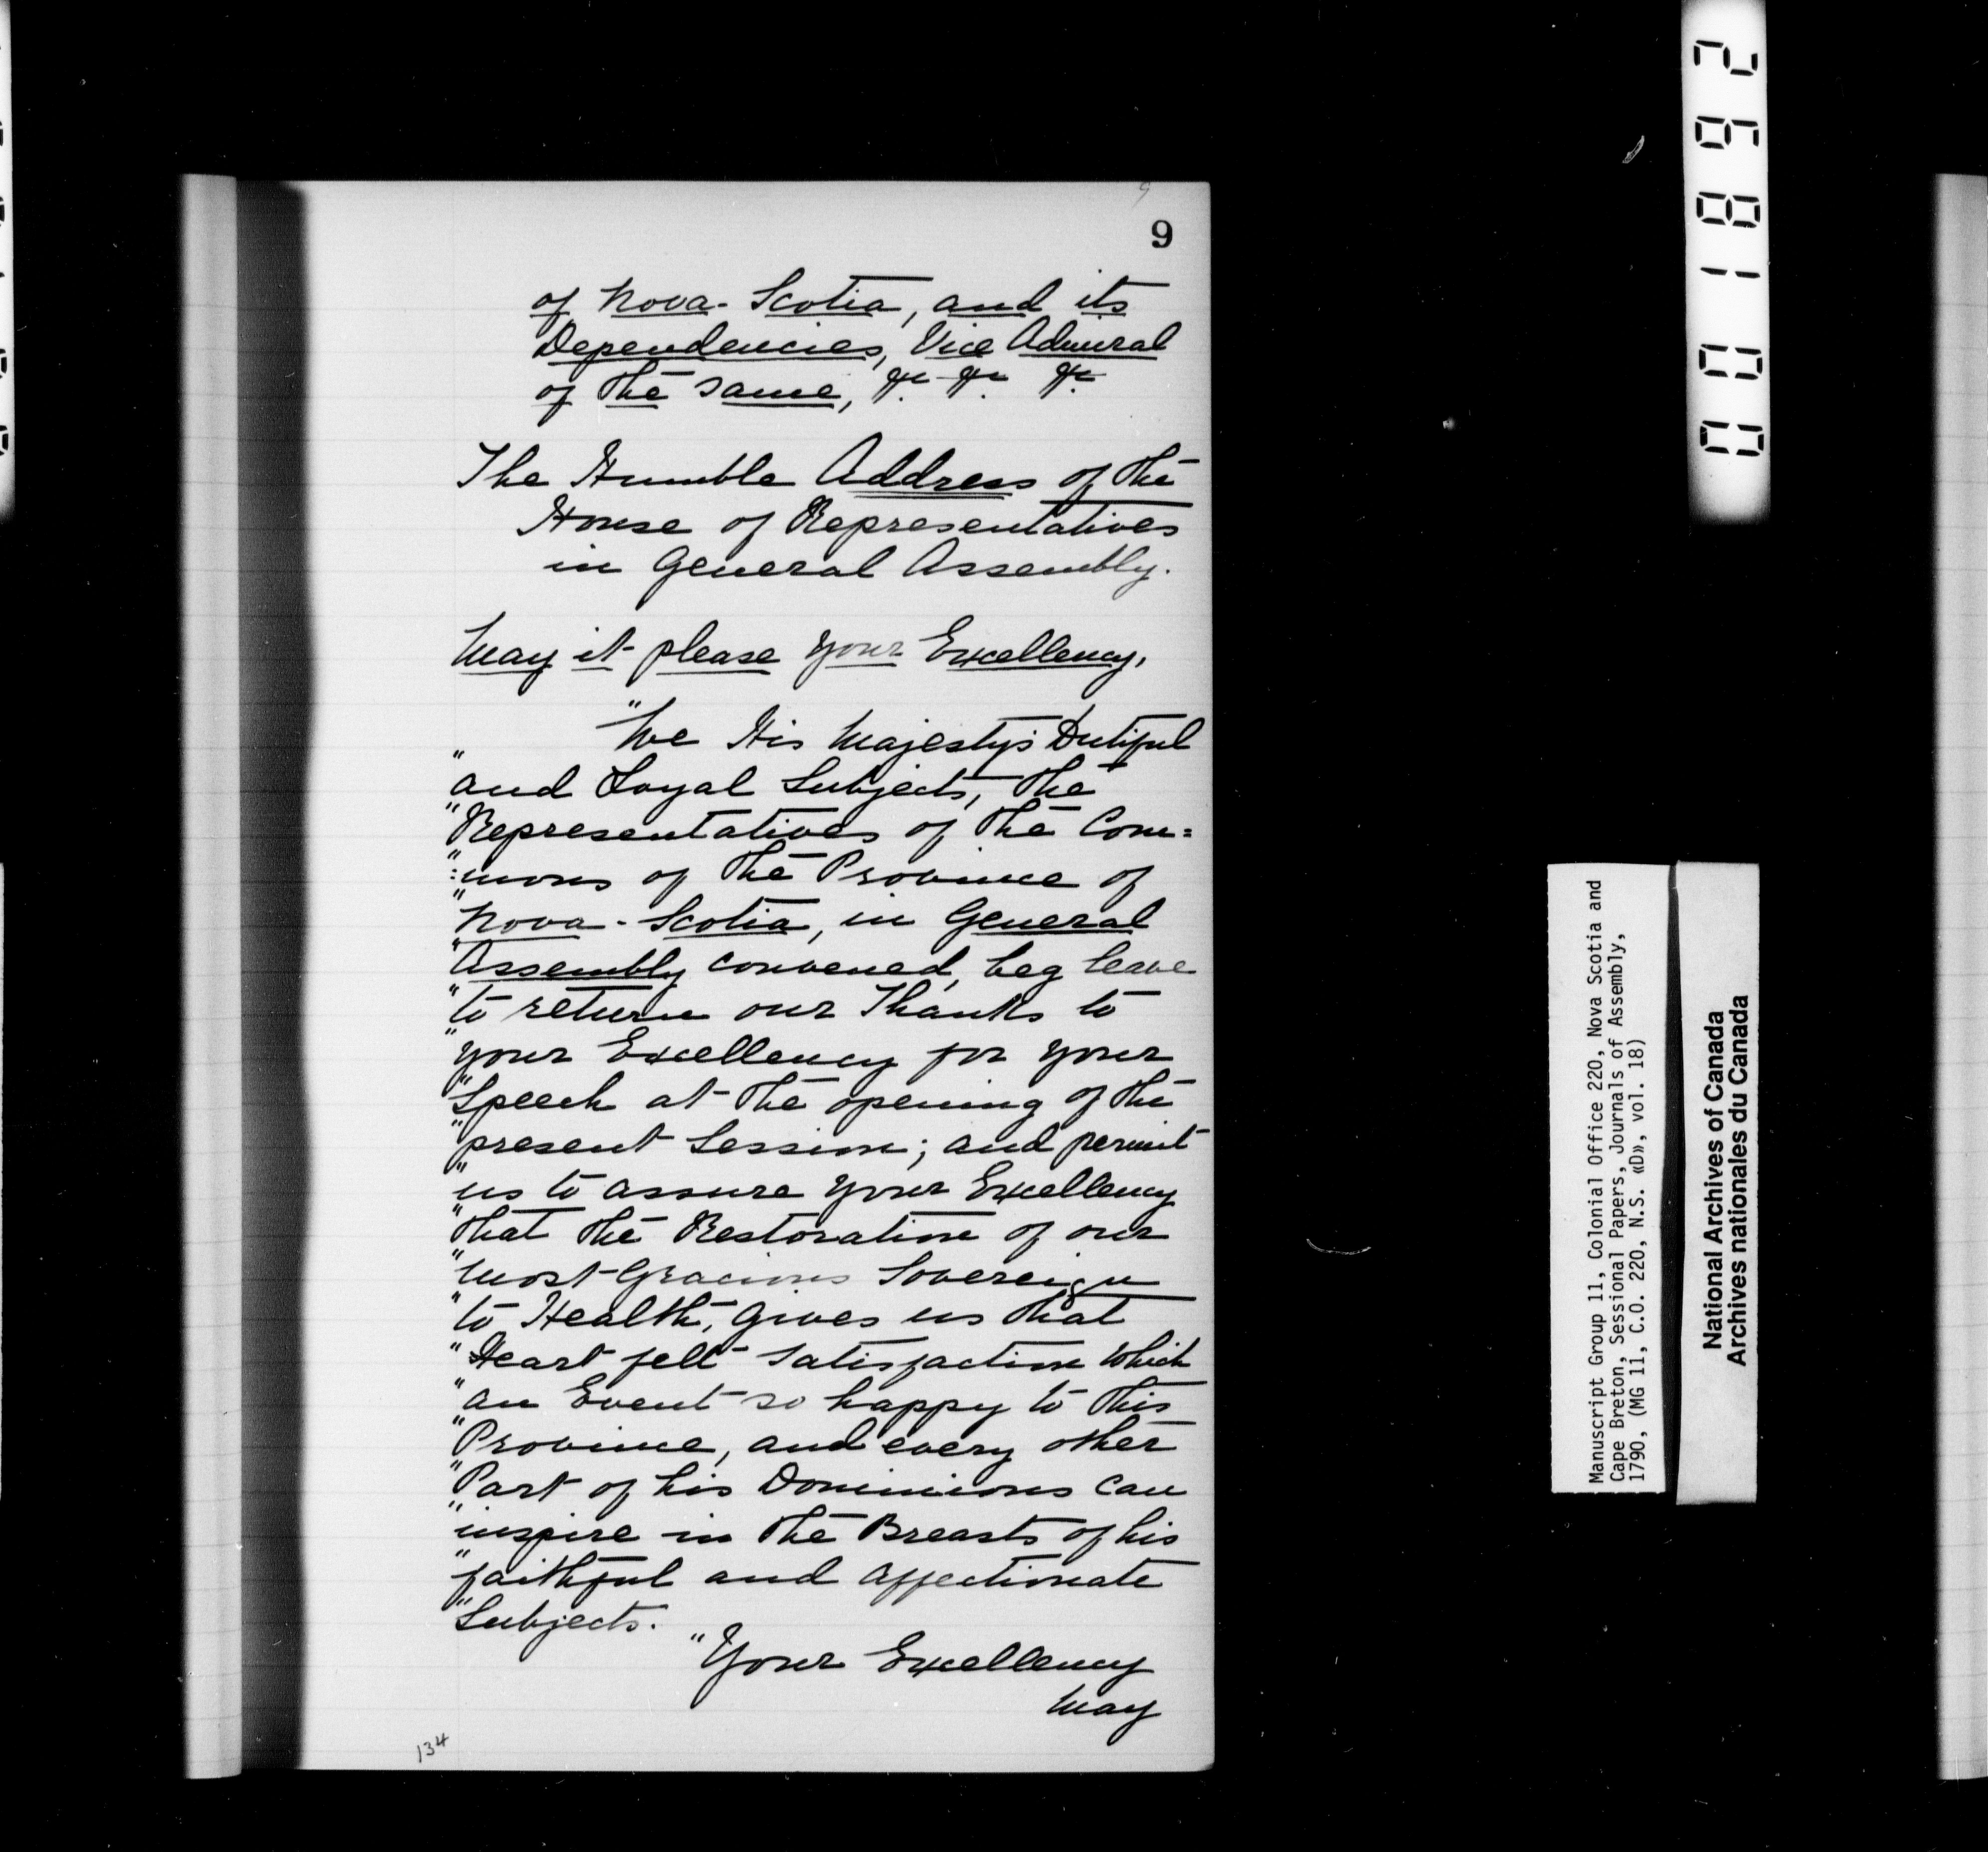 9
9
of Nova-Scotia, and its
Dependencies, Vice Admiral
of the same, &c. &c. &c.
The Humble Address of the
House of Representatives
in General Assembly.
May it please your Excellency,
"We His Majesty's Dutiful
"and Loyal Subjects, the
"Representatives of the Com=
":mons of the Province of
"Nova-Scotia, in General
"Assembly convened, beg leave
"to return our Thanks to
"your Excellency for your
"Speech at the opening of the
"present Session; and permit
"us to assure your Excellency
"that the Restoration of our
"most Gracious Sovereign
"to Health, gives us that
"Heart felt satisfaction which
"an Event so happy to this
"Province, and every other
"Part of his Dominions can
"inspire in the Breasts of his
"faithful and affectionate
"Subjects.
"Your Excellency
may
134
Manuscript Group 11, Colonial Office 220, Nova Scotia and
Cape Breton, Sessional Papers, Journals of Assembly,
1790, (MG 11, C.O. 220, N.S. «D», vol. 18)
National Archives of Canada
Archives nationales du Canada
0 0 1 8 9 2